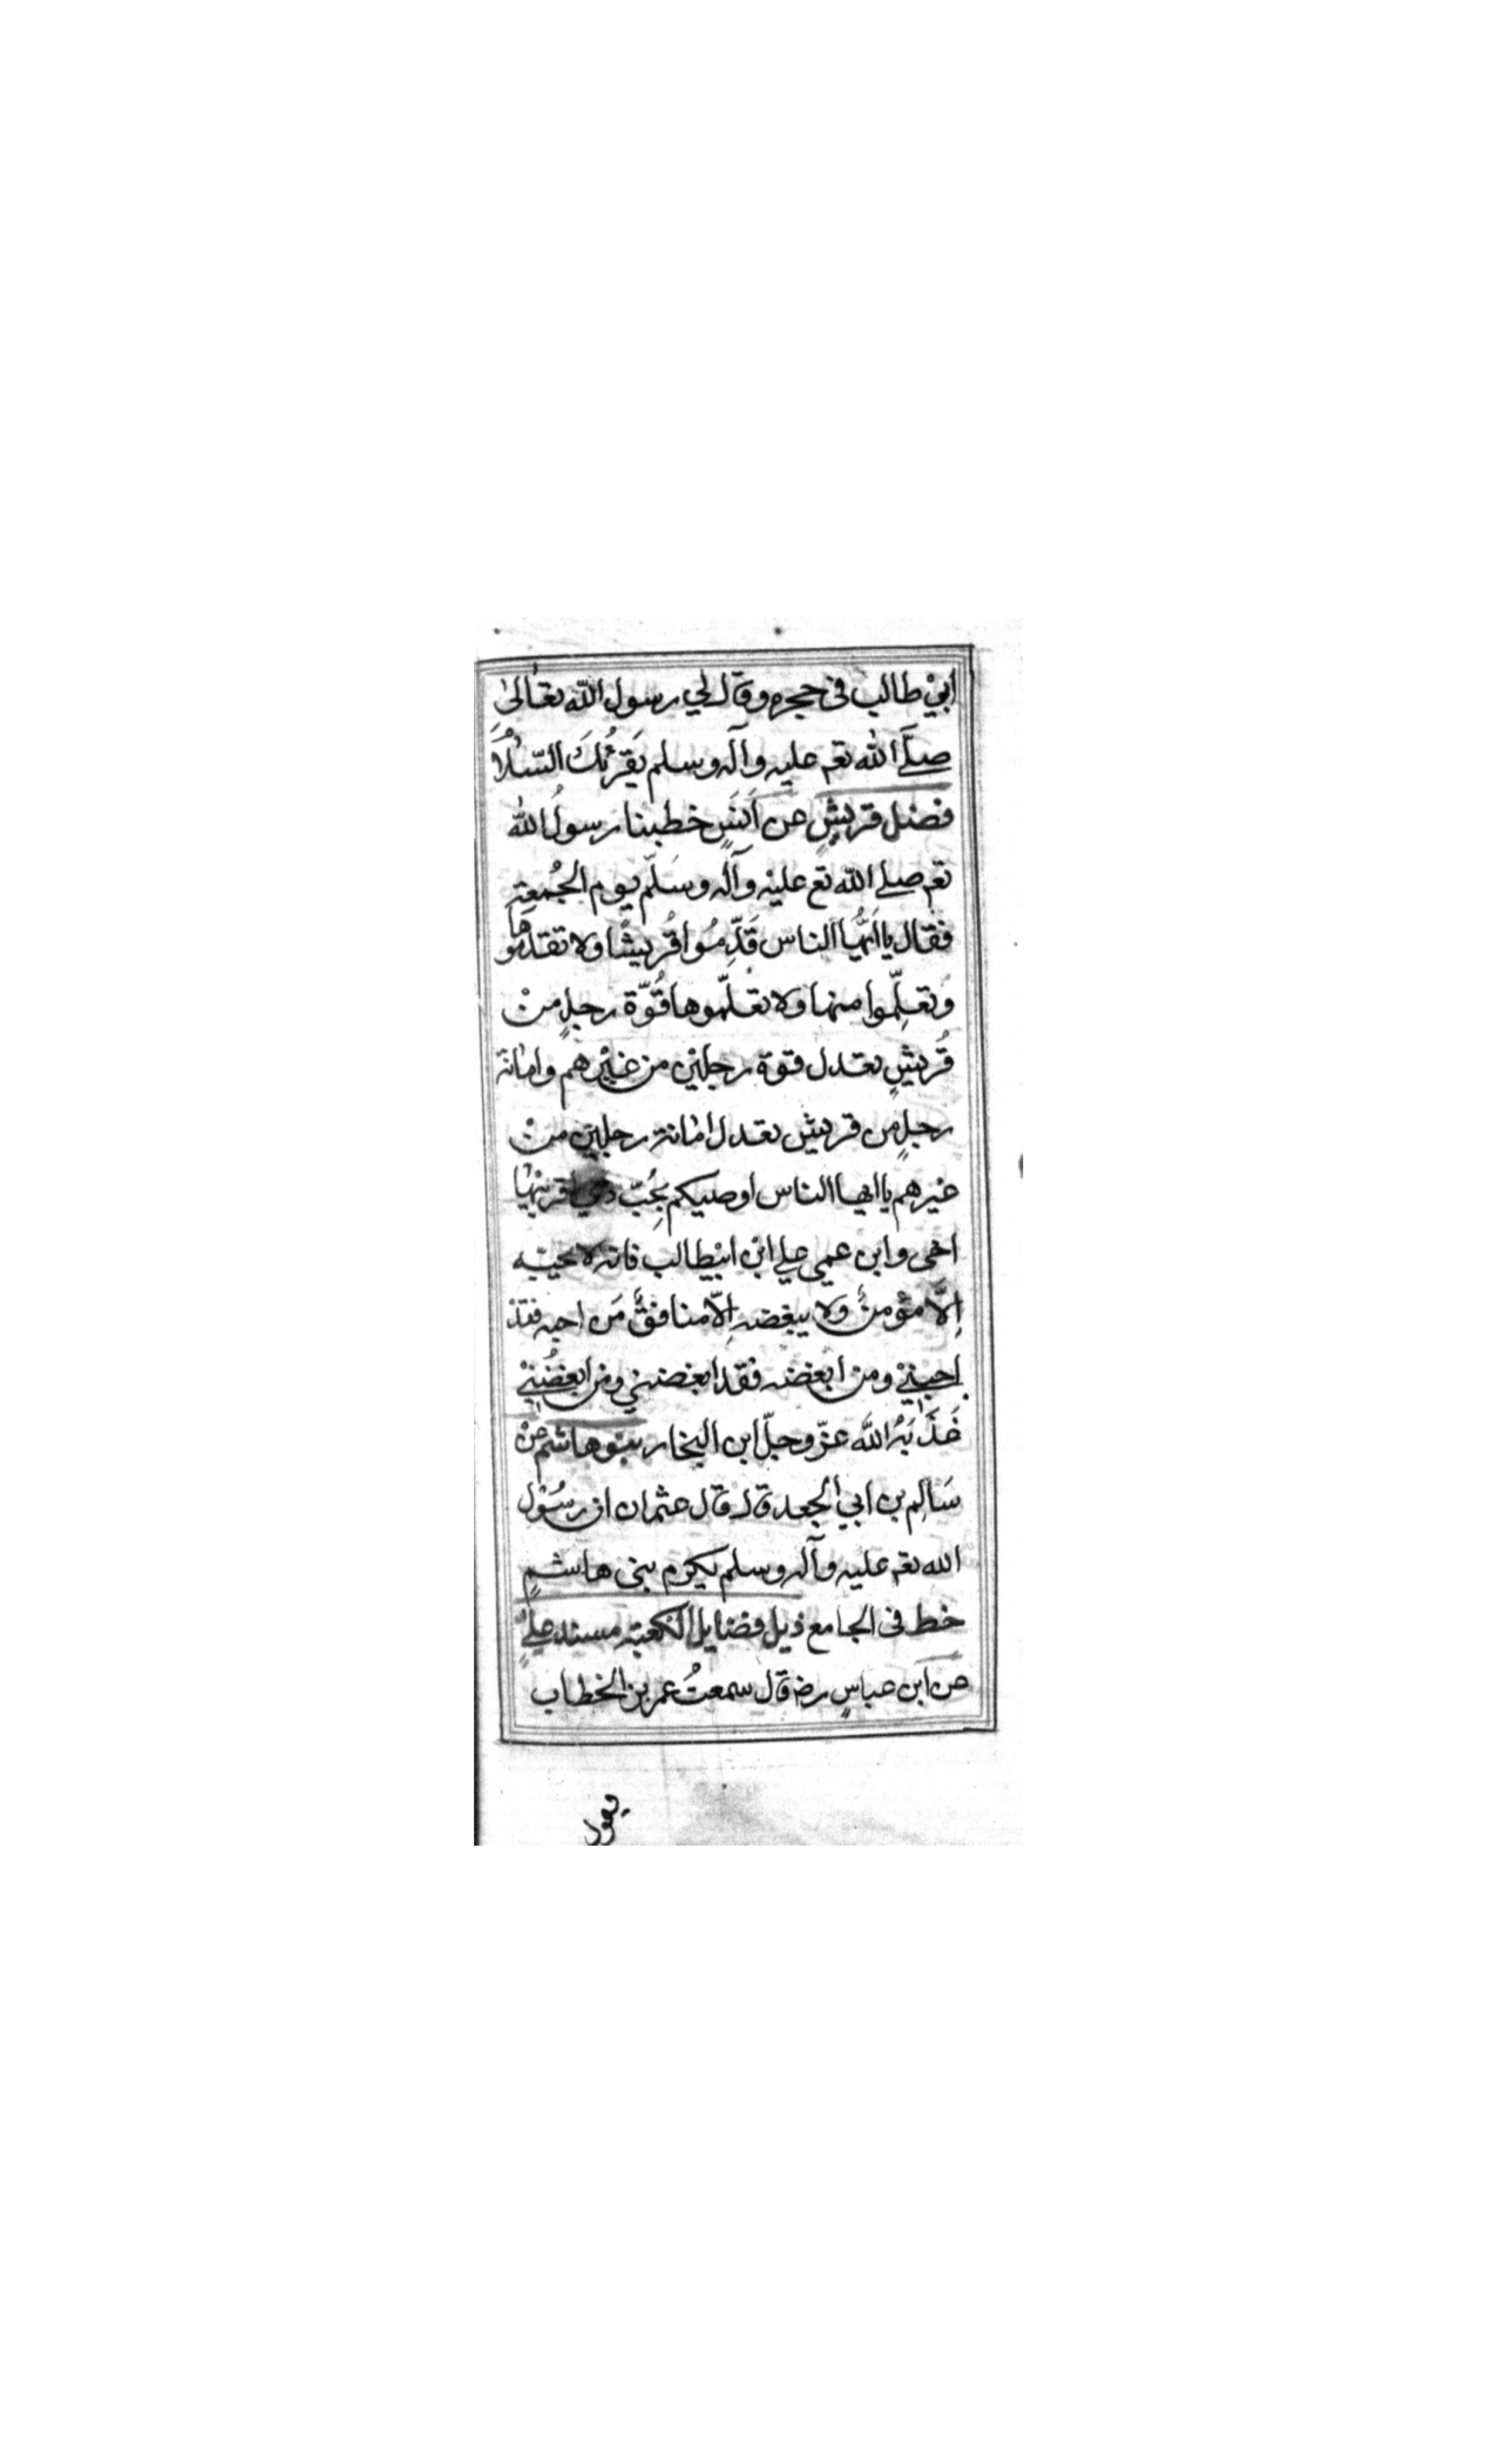 ابيْ طالب فى حجره وقال لي رسول الله تعالىٰ
صلَّے الله تعہ عليہ وآلہ وسلم يَقرُئكَ السّلامُ
فضل قريشٍ عن اَنَسٍ خطبنا رسولُ الله
تعہ صلے الله تع عليْہ وآلہ وسَلّم يوم الجُمعة
فقال يا اَيُّها الناس قَدِّمُوا قُريشًا ولا تقدموها
وَتعلِّموا منها ولا تعلّموها قُوّة رجلٍ منْ
قُريشٍ تعدل قوة رجلينِ من غيْرِهم وامانة
رجلٍ من قريش تعدل امانة رجلين منْ
غيرهم يا ايها الناس اوصيكم بِحُبّ ذي اقربيْها
اخى وابن عمي علے ابن ابيْطالب فانه لا يحبّه
اِلاَّ مؤمنٌ ولا يبغضه اِلاّ منافقٌ مَن احبه فقد
احبنيْ ومن ابغضه فقد ابغضني ومن ابغضَنيْ
عَذَّبَهُ الله عزّ وجلّ ابن النجار بنو هاشم عنْ
سَالِم بن ابي الجعد قال قال عثمان ان رسُوْل
الله تعہ عليہ وآلہ وسلم يكرم بنى هاشمٍ
خط فى الجامع ذيل فضايل الكعبة مسند علےٍّ
عن ابن عباسٍ رضہ قال سمعتُ عمر بن الخطاب
يقول